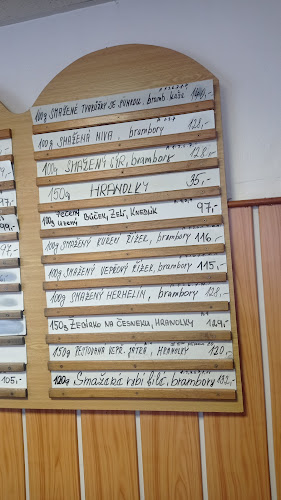 100g SMAŽENÉ TVARŮŽKY SE ŠUNKOU, bramb. kaše 144,-
100g SMAŽENÁ NIVA, brambory 128,-
100g SMAŽENÝ SÝR, brambory 128,-
150g HRANOLKY 35,-
100g PEČENÝ UZENÝ BŮČEK, ZELÍ, KNEDLÍK 97,-
100g SMAŽENÝ KUŘECÍ ŘÍZEK, brambory 116,-
100g SMAŽENÝ VEPŘOVÝ ŘÍZEK, brambory 115,-
100g SMAŽENÝ HERMELÍN, brambory 128,-
150g ŽEBÍRKO NA ČESNEKU, HRANOLKY 129,-
150g PEŠTOVANÁ VEPŘ. JÁTRA, HRANOLKY 120,-
120g Smažené rybí filé, brambory 132,-
105,-